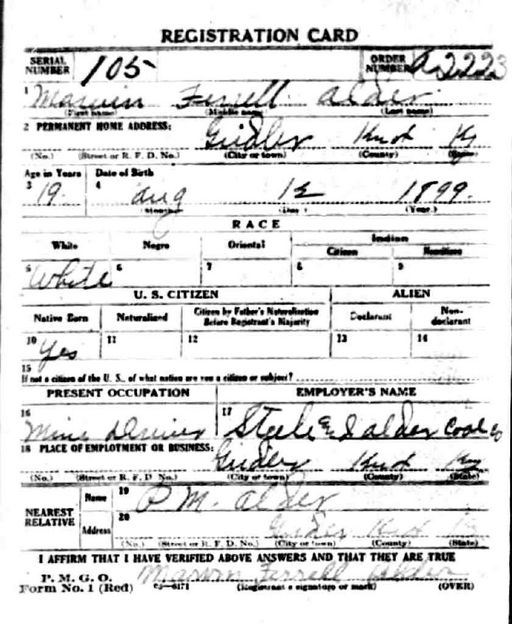 REGISTRATION CARD
SERIAL NUMBER 105 ORDER NUMBER A2223
1 Marvin Ferrell Alder
(First name) (Middle name) (Last name)
2 PERMANENT HOME ADDRESS: Ky
(No.) (Street or R. F. D. No.) (City or town) (County) (State)
Age in Years Date of Birth
3 19 4 Aug 1899
(Month) (Day) (Year.)
RACE
White Negro Oriental Indian
Citizen Noncitizen
5 White 6 7 8 9
U. S. CITIZEN ALIEN
Native Born Naturalized Citizen by Father's Naturalization Before Registrant's Majority Declarant Non-declarant
10 Yes 11 12 13 14
15
If not a citizen of the U. S., of what nation are you a citizen or subject?
PRESENT OCCUPATION EMPLOYER'S NAME
16 Mine 17 Steele & Coal Co
18 PLACE OF EMPLOYMENT OR BUSINESS: Ky
(No.) (Street or R. F. D. No.) (City or town) (County) (State)
NEAREST RELATIVE Name 19 P. M. Alder
Address 20
(No.) (Street or R. F. D. No.) (City or town) (County) (State)
I AFFIRM THAT I HAVE VERIFIED ABOVE ANSWERS AND THAT THEY ARE TRUE
P. M. G. O. Marvin Ferrell Alder
Form No. 1 (Red) 03—6171 (Registrant's signature or mark) (OVER)